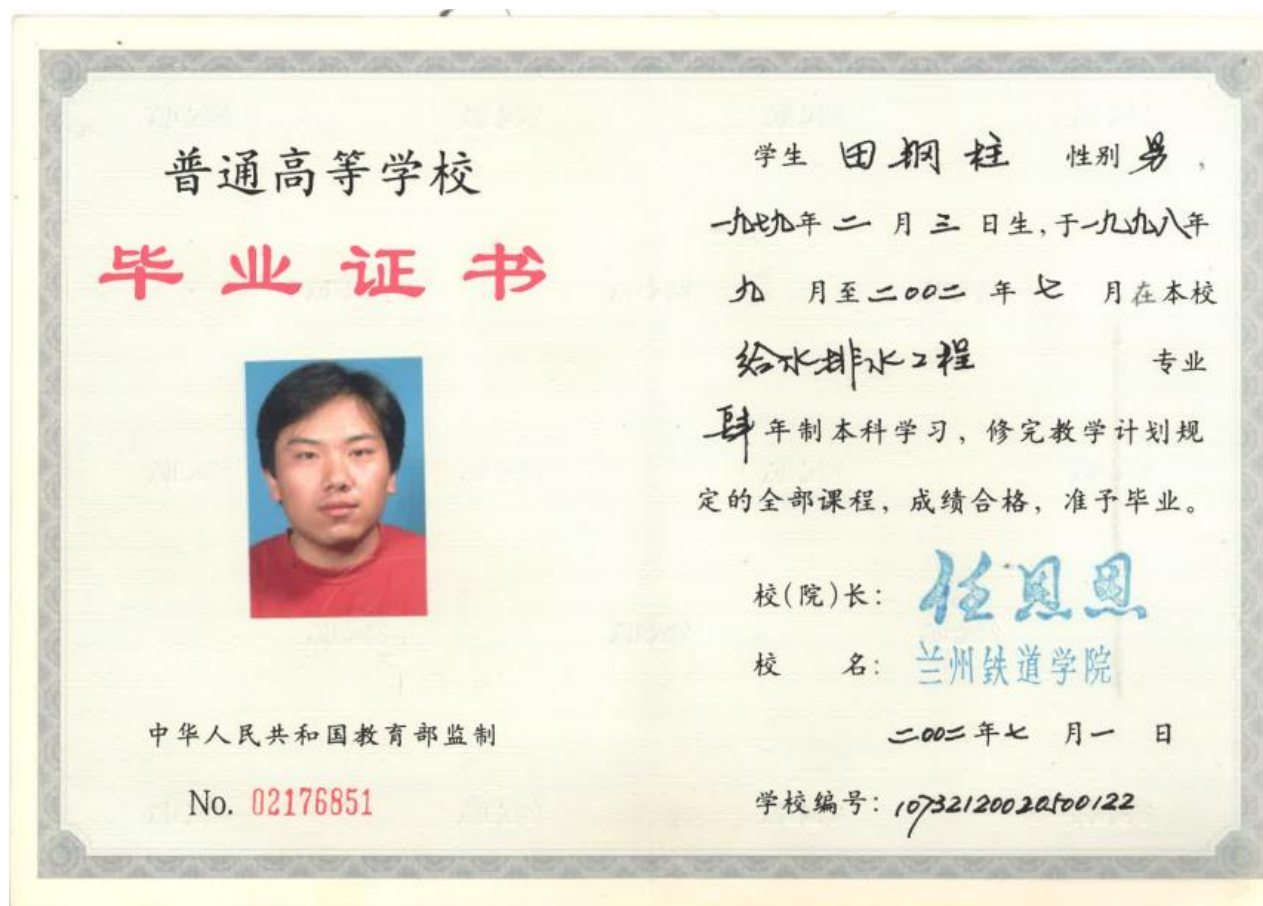 普通高等学校
毕业证书
中华人民共和国教育部监制
No. 02176851
学生 田钢柱 性别 男，
一九七九年 二 月 三 日生，于一九九八年
九 月至二〇〇二 年 七 月在本校
给水排水工程 专业
肆年制本科学习，修完教学计划规
定的全部课程，成绩合格，准予毕业。
校(院)长： 任恩恩
校 名： 兰州铁道学院
二〇〇二年七 月一 日
学校编号：10732120020500122